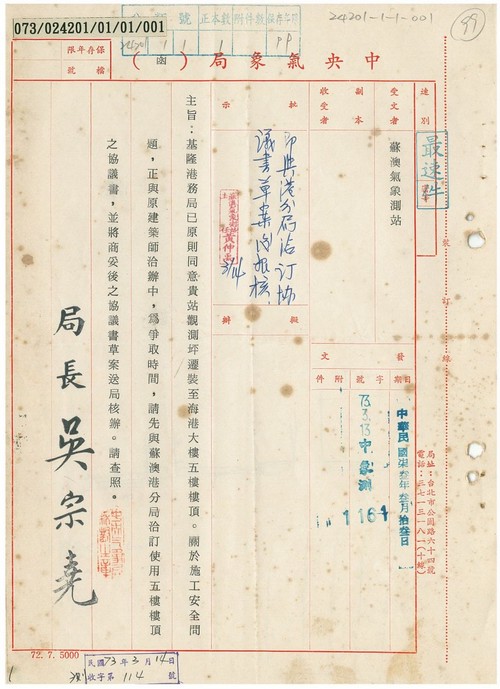 073/024201/01/01/001
24201-1-1-001
99
檔號
保存年限
號
正本數
附件數
24201
1
1
1
中央氣象局（函）
速別
最速件
受文者
蘇澳氣象測站
副本
收受者
批示
即與港分局洽訂協
議書草案函報核。
黃仲
3/14
擬辦
發文
日期
字號
附件
中華民國柒叁年叁月拾叁日
73.3.13
中象測
1164
局址：台北市公園路六十四號
電話：三七一三一八一（十線）
裝訂線
主旨：基隆港務局已原則同意貴站觀測坪遷裝至海港大樓五樓樓頂。關於施工安全問
題，正與原建築師洽辦中，為爭取時間，請先與蘇澳港分局洽訂使用五樓樓頂
之協議書，並將商妥後之協議書草案送局核辦。請查照。
局長吳宗堯
72.7.5000
民國73年3月14日
測收字第114號